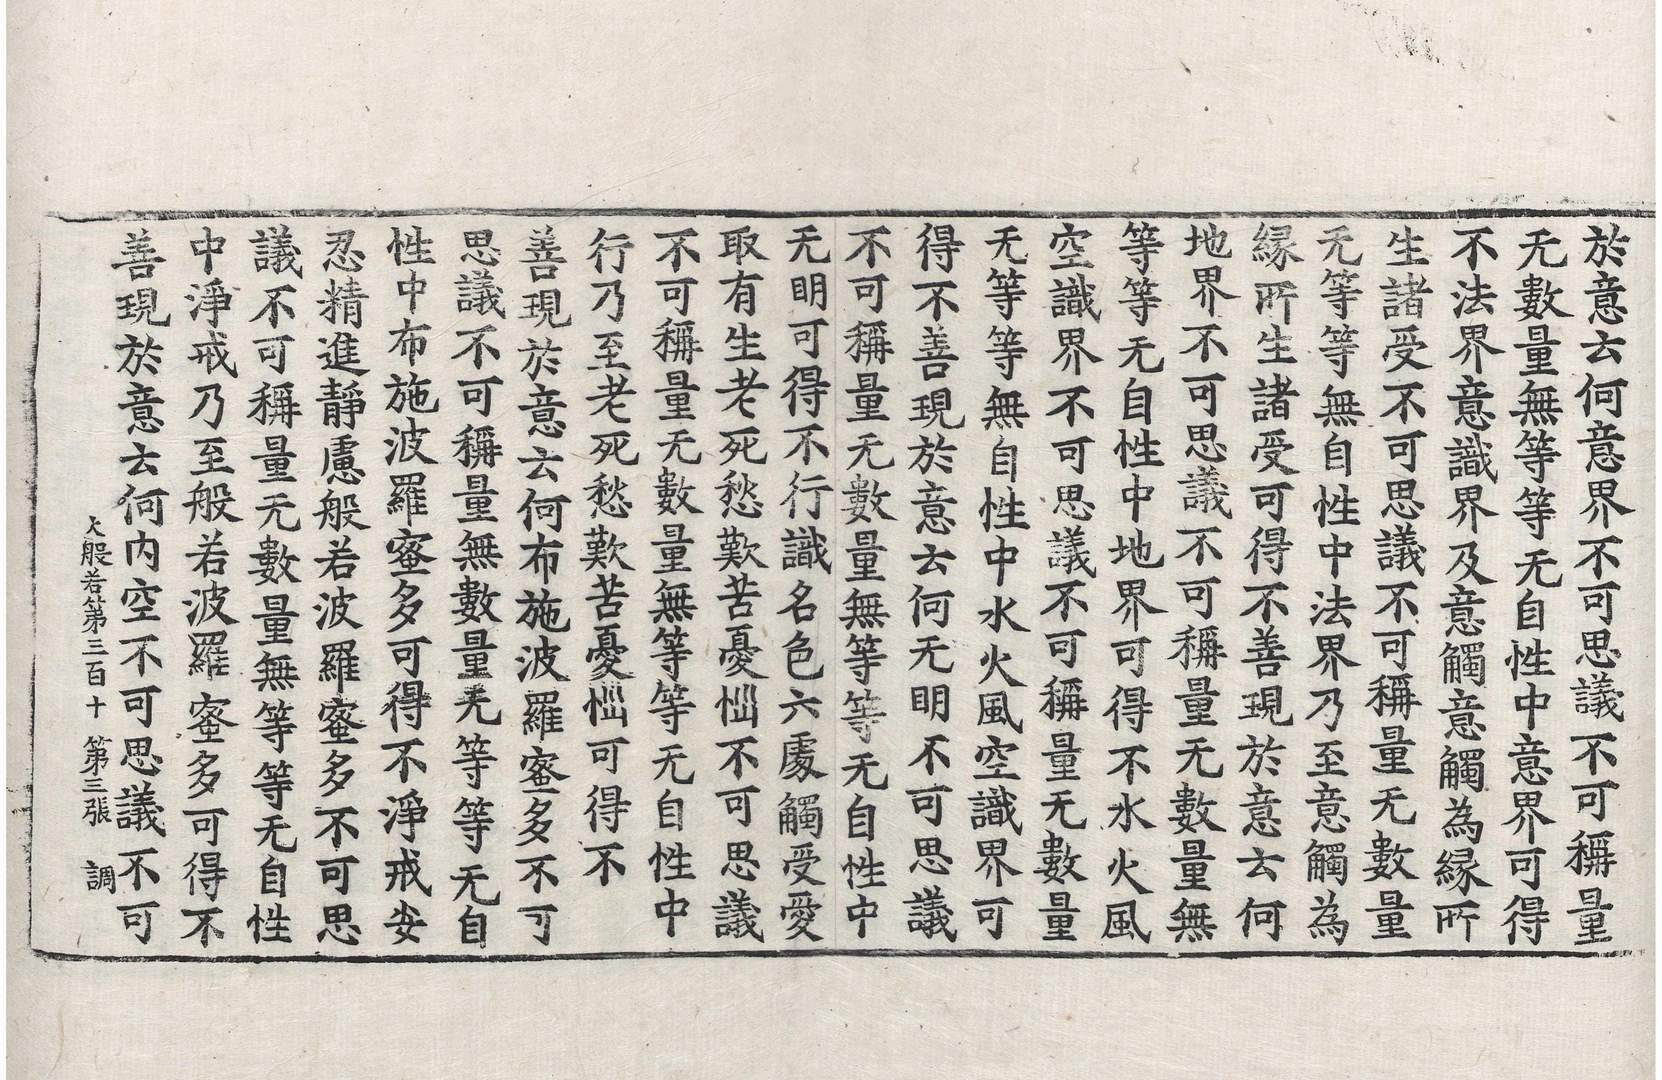 於意云何意界不可思議不可稱量
无數量無等等无自性中意界可得
不法界意識界及意觸意觸為緣所
生諸受不可思議不可稱量无數量
无等等無自性中法界乃至意觸為
緣所生諸受可得不善現於意云何
地界不可思議不可稱量无數量無
等等无自性中地界可得不水火風
空識界不可思議不可稱量无數量
无等等無自性中水火風空識界可
得不善現於意云何无明不可思議
不可稱量无數量無等等无自性中
无明可得不行識名色六處觸受愛
取有生老死愁歎苦憂惱不可思議
不可稱量无數量無等等无自性中
行乃至老死愁歎苦憂惱可得不
善現於意云何布施波羅蜜多不可
思議不可稱量無數量无等等无自
性中布施波羅蜜多可得不淨戒安
忍精進靜慮般若波羅蜜多不可思
議不可稱量无數量無等等无自性
中淨戒乃至般若波羅蜜多可得不
善現於意云何內空不可思議不可
大般若第三百十 第三張 調